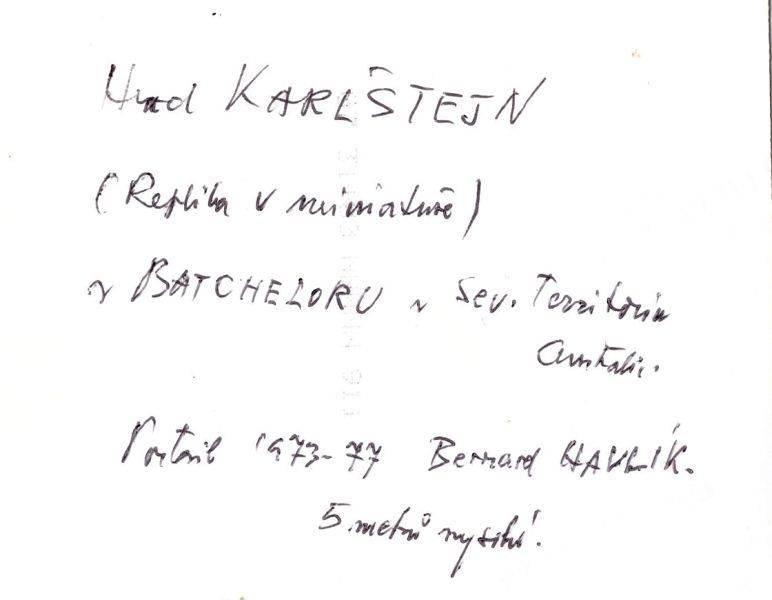 Hrad KARLŠTEJN
(Replika v miniatuře)
v BATCHELORU v Sev. Teritoriu
Austrálie.
Postavil 1973-77 Bernard HAVLÍK.
5 metrů vysoký.